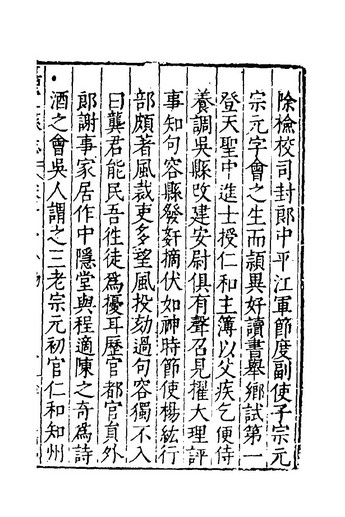 除檢校司封郎中平江軍節度副使子宗元
宗元字會之生而頴異好讀書舉鄉試第一
登天聖中進士授仁和主簿以父疾乞便侍
養調吳縣改建安尉俱有聲召見擢大理評
事知句容縣發奸摘伏如神時節使楊紘行
部頗著風裁吏多望風投劾過句容獨不入
曰龔君能民吾徃徒爲擾耳歷官都官員外
郎謝事家居作中隱堂與程適陳之奇爲詩
酒之會吳人謂之三老宗元初官仁和知州